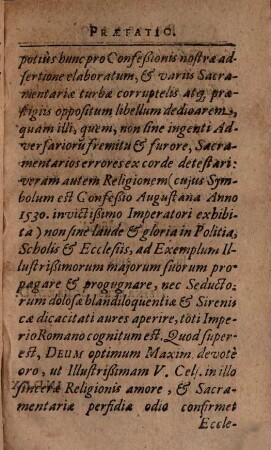 PRÆFATIO.
potiùs hunc pro Confessionis nostræ ad-
sertione elaboratum, & variis Sacra-
mentariæ turbæ corruptelis atq; præ-
stigiis oppositum libellum dedicarem,
quam illi, quem, non sine ingenti Ad-
versarioru fremitu & furore, Sacra-
mentarios errores ex corde detestari:
veram autem Religionem (cujus Sym-
bolum est Confessio Augustana Anno
1530. invictissimo Imperatori exhibi-
ta) non sine laude & gloria in Politia,
Scholis & Ecclesiis, ad Exemplum Il-
lustrissimorum majorum suorum pro-
pagare & propugnare, nec Seducto-
rum dolosæ blandiloquentiæ & Sirenis
cæ dicacitati aures aperire, tôti Impe-
rio Romano cognitum est. Quod super-
est, DEUM optimum Maxim. devotè
oro, ut Illustrissimam V. Cel. in illo
sinceræ Religionis amore, & Sacra-
mentariæ perfidiæ odio confirmet
Eccle-